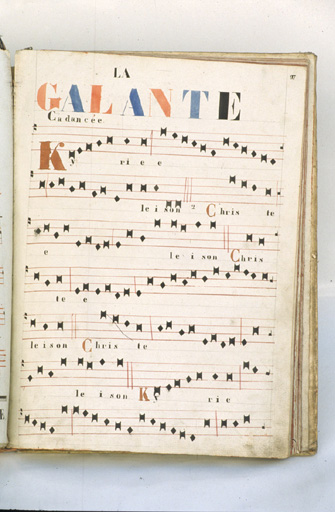 LA
GALANTE
Cadancée
Ky rie e
leison 2 Chris te
e leison Chris
te e
leison Chris te
leison Ky rie